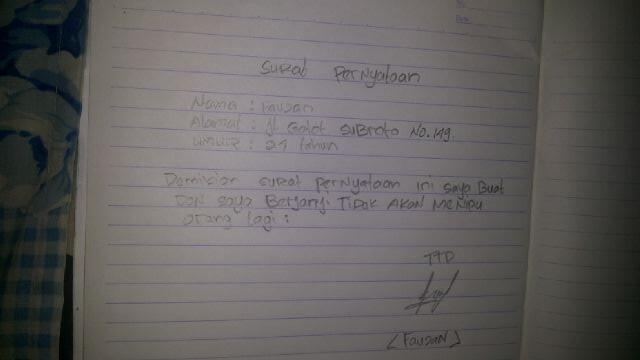 Surat Pernyataan
Nama : Fauzan
Alamat : Jl. Gatot Subroto No. 149.
Umur : 24 tahun
Demikian surat pernyataan ini saya buat
Dan saya Berjanji Tidak Akan Menipu
orang lagi :
TTD
(Fauzan)